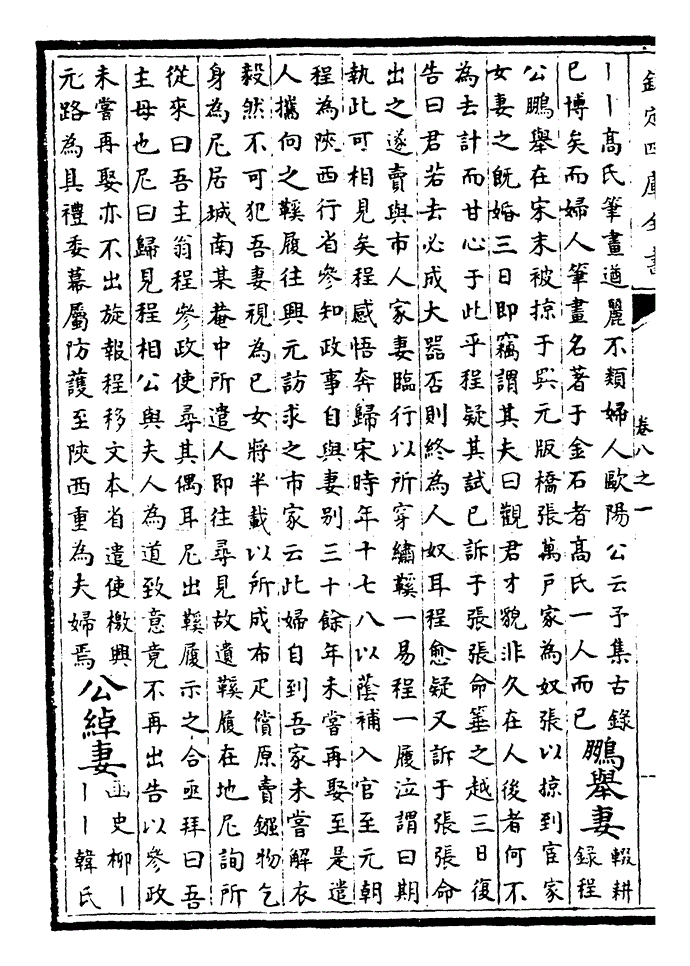 欽定四庫全書
卷八之一
丨丨髙氏筆畫遒麗不類婦人歐陽公云予集古錄
已博矣而婦人筆畫名著于金石者髙氏一人而已
鵬舉妻
輟耕
錄程
公鵬舉在宋末被掠于興元版橋張萬戶家為奴張以掠到宦家
女妻之既婚三日即竊謂其夫曰觀君才貌非久在人後者何不
為去計而甘心于此乎程疑其試已訴于張張命箠之越三日復
告曰君若去必成大器否則終為人奴耳程愈疑又訴于張張命
出之遂賣與市人家妻臨行以所穿繡鞵一易程一履泣謂曰期
執此可相見矣程感悟奔歸宋時年十七八以蔭補入官至元朝
程為陜西行省參知政事自與妻别三十餘年未嘗再娶至是遣
人攜向之鞵履往興元訪求之市家云此婦自到吾家未嘗解衣
毅然不可犯吾妻視為已女將半載以所成布疋償原賣鏹物乞
身為尼居城南某菴中所遣人即往尋見故遺鞵履在地尼詢所
從來曰吾主翁程參政使尋其偶耳尼出鞵履示之合亟拜曰吾
主母也尼曰歸見程相公與夫人為道致意竟不再出告以參政
未嘗再娶亦不出旋報程移文本省遣使檄興
元路為具禮委幕屬防護至陜西重為夫婦焉
公綽妻
凾史柳丨
丨丨韓氏